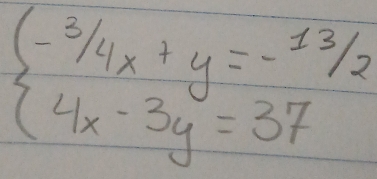 -3/4x + y = -13/2
4x - 3y = 37